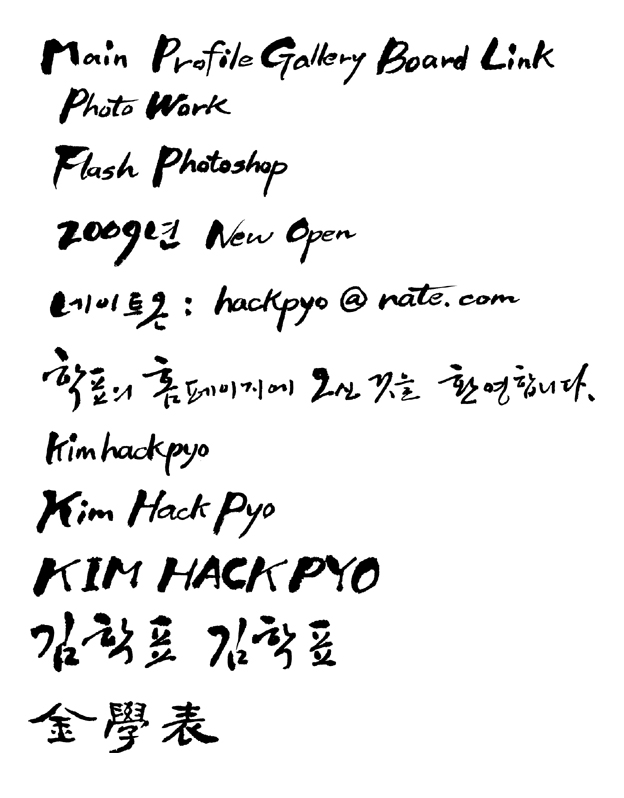 Main Profile Gallery Board Link
Photo Work
Flash Photoshop
2009년 New Open
네이트온 : hackpyo @ nate.com
학표의 홈페이지에 오신 것을 환영합니다.
kimhackpyo
Kim Hack Pyo
KIM HACK PYO
김학표 김학표
金學表